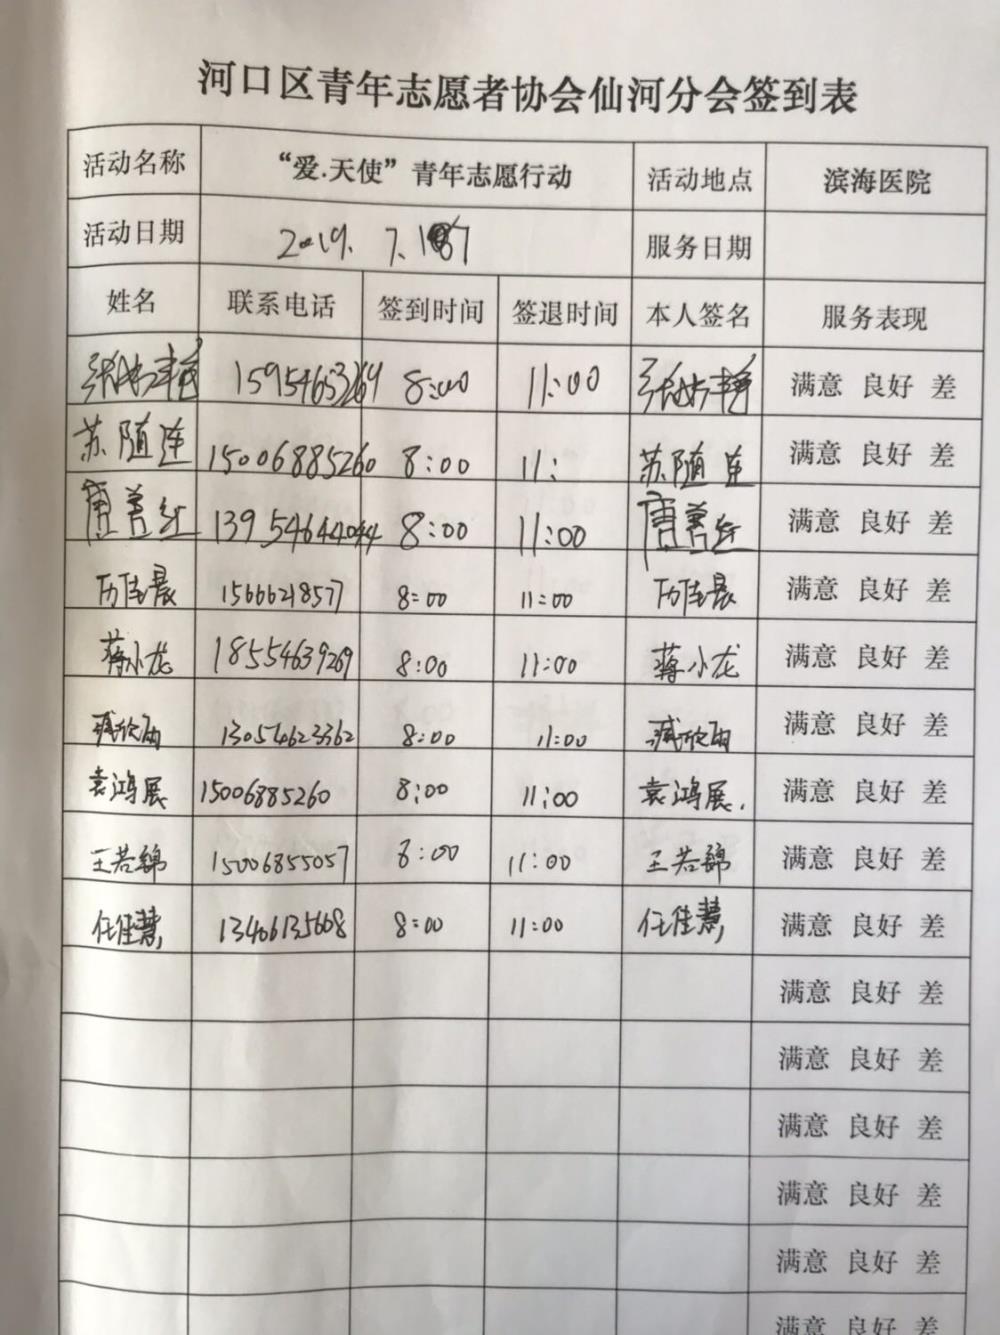 河口区青年志愿者协会仙河分会签到表
活动名称 “爱.天使”青年志愿行动 活动地点 滨海医院
活动日期 2019. 7. 17 服务日期
姓名 联系电话 签到时间 签退时间 本人签名 服务表现
15954653269 8:00 11:00 满意 良好 差
苏随连 15006885260 8:00 11: 苏随连 满意 良好 差
唐善红 13954644044 8:00 11:00 唐善红 满意 良好 差
厉佳晨 15666218577 8:00 11:00 厉佳晨 满意 良好 差
蒋小龙 18554639269 8:00 11:00 蒋小龙 满意 良好 差
臧欣雨 13054623362 8:00 11:00 臧欣雨 满意 良好 差
袁鸿展 15006885260 8:00 11:00 袁鸿展. 满意 良好 差
王若锦 15006855057 8:00 11:00 王若锦 满意 良好 差
任佳慧 13406135608 8:00 11:00 任佳慧 满意 良好 差
满意 良好 差
满意 良好 差
满意 良好 差
满意 良好 差
满意 良好 差
满意 良好 差